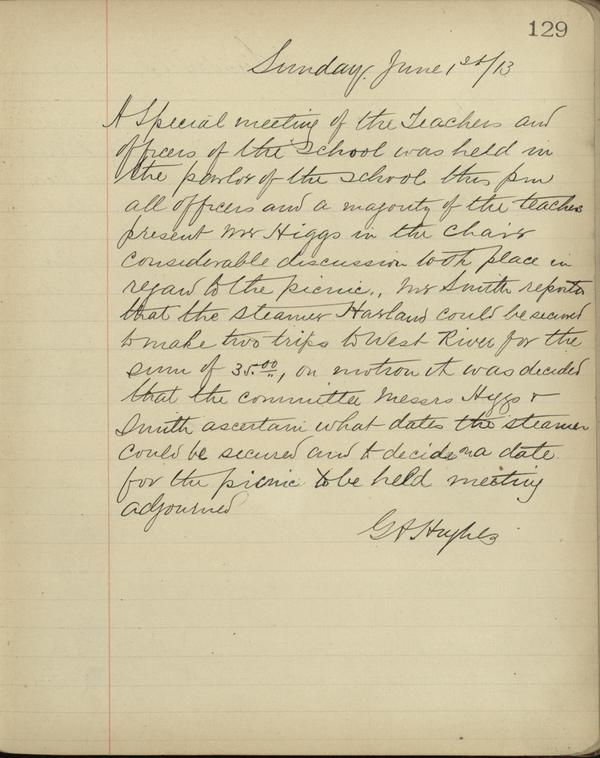 129
Sunday. June 1st/13
A Special meeting of the Teachers and
officers of the School was held in
the parlor of the School this pm
all officers and a majority of the teachers
present Mr Higgs in the Chair
considerable discussion took place in
regard to the picnic., Mr Smith reports
that the steamer Harland could be secured
to make two trips to West River for the
sum of 35.00, on motion it was decided
that the committee Messrs Higgs &
Smith ascertain what dates the steamer
could be secured and to decide on a date
for the picnic to be held meeting
adjourned
G A Hughes